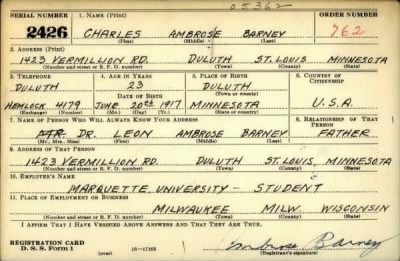 05362
SERIAL NUMBER 1. NAME (Print) ORDER NUMBER
2426 CHARLES AMBROSE BARNEY 762
(First) (Middle) (Last)
2. ADDRESS (Print)
1423 VERMILLION RD. DULUTH ST. LOUIS MINNESOTA
(Number and street or R. F. D. number) (Town) (County) (State)
3. TELEPHONE 4. AGE IN YEARS 5. PLACE OF BIRTH 6. COUNTRY OF CITIZENSHIP
DULUTH 23 DULUTH
DATE OF BIRTH (Town or county)
HEMLOCK 4179 JUNE 20th 1917 MINNESOTA U.S.A.
(Exchange) (Number) (Mo.) (Day) (Yr.) (State or country)
7. NAME OF PERSON WHO WILL ALWAYS KNOW YOUR ADDRESS 8. RELATIONSHIP OF THAT PERSON
MR. DR. LEON AMBROSE BARNEY FATHER
(Mr., Mrs., Miss) (First) (Middle) (Last)
9. ADDRESS OF THAT PERSON
1423 VERMILLION RD. DULUTH ST. LOUIS, MINNESOTA
(Number and street or R. F. D. number) (Town) (County) (State)
10. EMPLOYER'S NAME
MARQUETTE UNIVERSITY - STUDENT
11. PLACE OF EMPLOYMENT OR BUSINESS
MILWAUKEE MILW. WISCONSIN
(Number and street or R. F. D. number) (Town) (County) (State)
I AFFIRM THAT I HAVE VERIFIED ABOVE ANSWERS AND THAT THEY ARE TRUE.
REGISTRATION CARD
D. S. S. Form 1 16-17105 Ambrose Barney
(Registrant's signature)